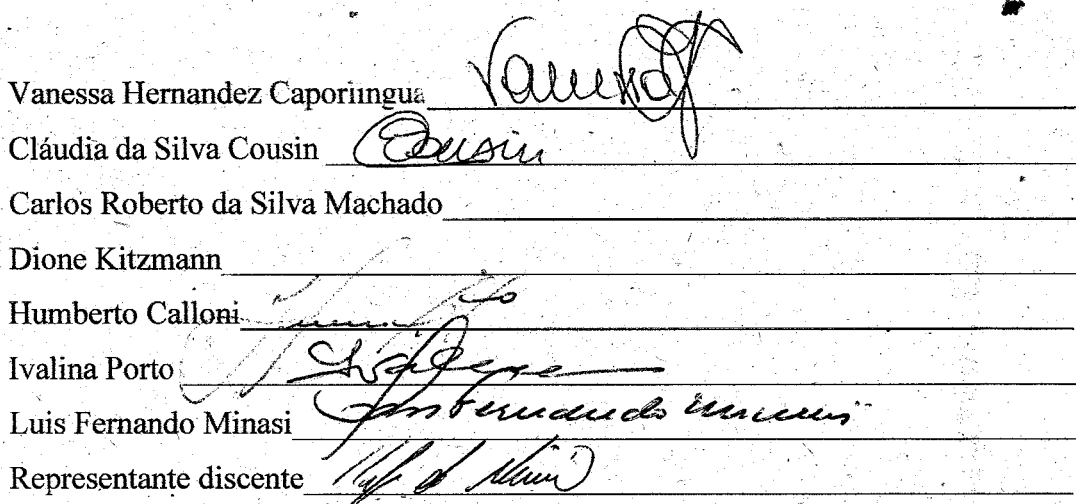 Vanessa Hernandez Caporlingua
Cláudia da Silva Cousin Cousin
Carlos Roberto da Silva Machado
Dione Kitzmann
Humberto Calloni
Ivalina Porto
Luis Fernando Minasi
Representante discente